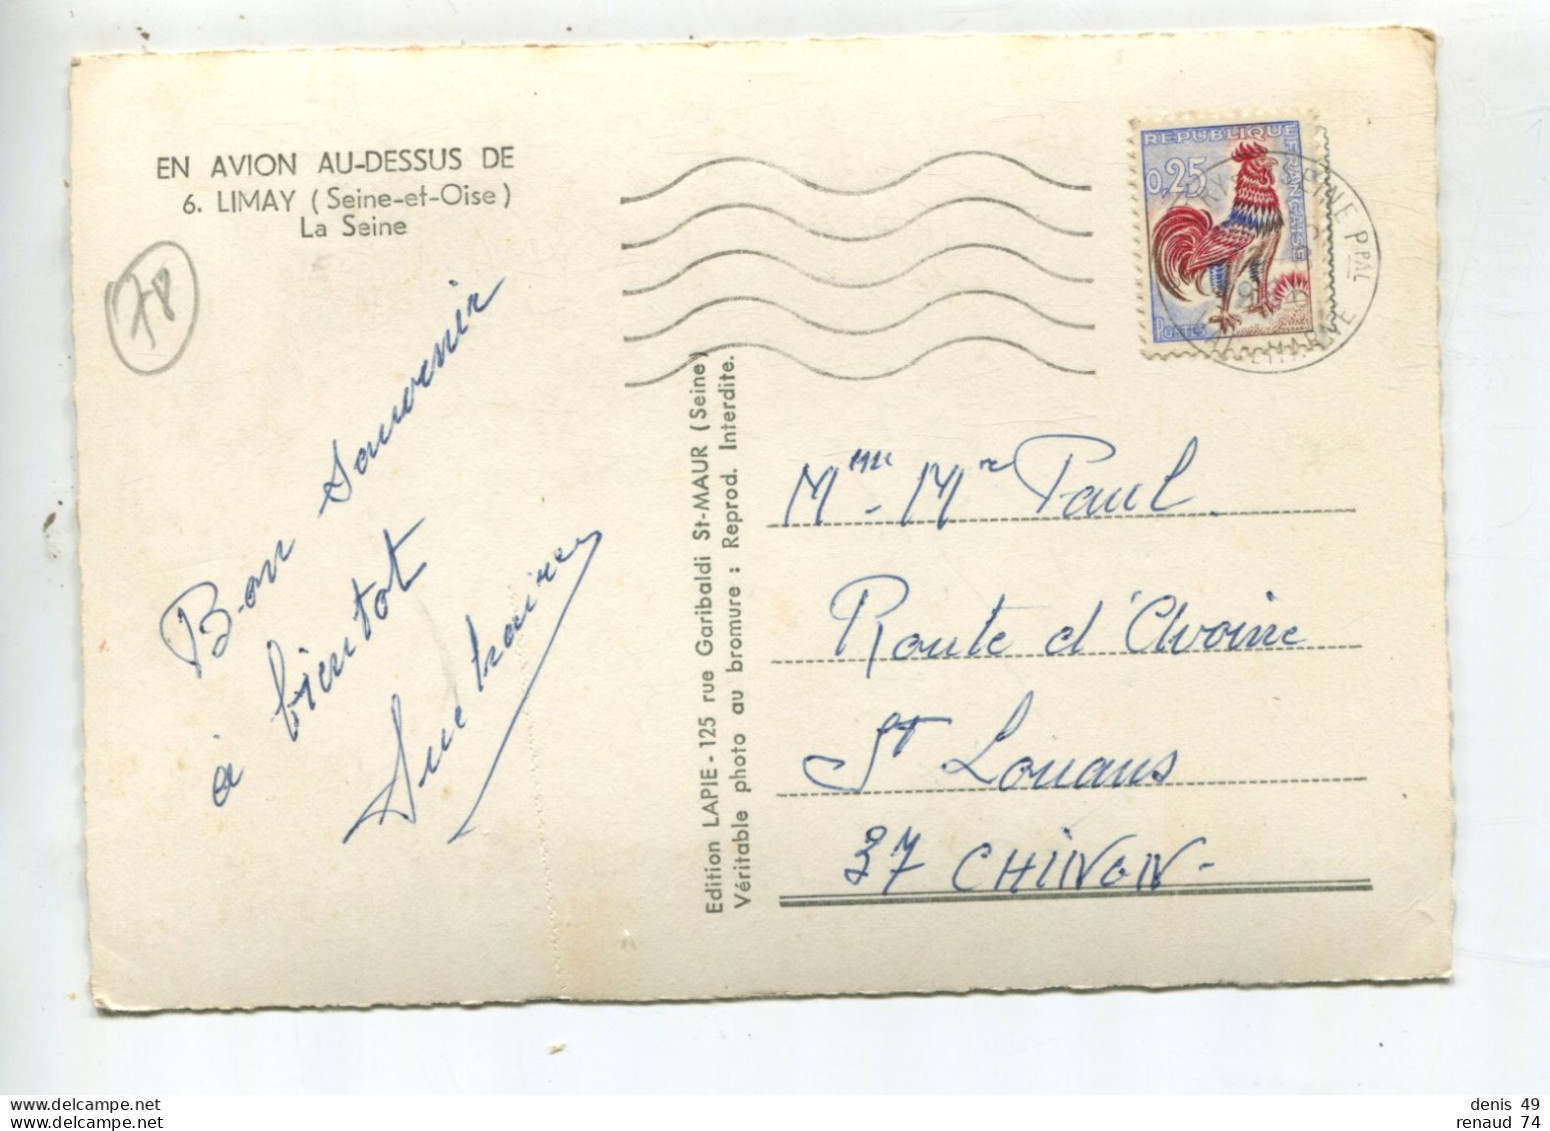 EN AVION AU-DESSUS DE
6. LIMAY (Seine-et-Oise)
La Seine
78
Bon souvenir
à bientot
REPUBLIQUE FRANÇAISE
0,25
POSTES
Edition LAPIE - 125 rue Garibaldi St-MAUR (Seine)
Véritable photo au bromure : Reprod. Interdite.
Mme - Mr Paul
Route d'Avoine
St Louans
37 CHINON -
denis 49
renaud 74